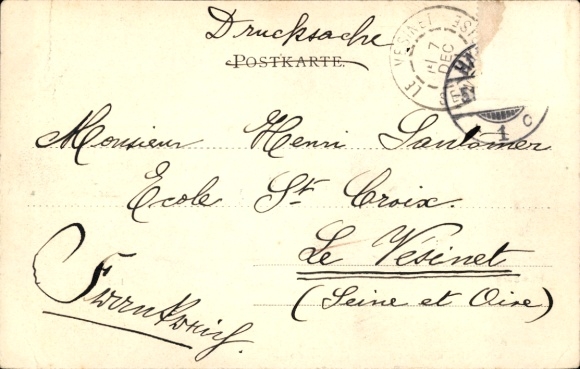 Drucksache
POSTKARTE.
LE VESINET
7
DEC
1 c
Monsieur Henri Santomer
Ecole St Croix.
Le Vésinet
(Seine et Oise)
Frankreich.